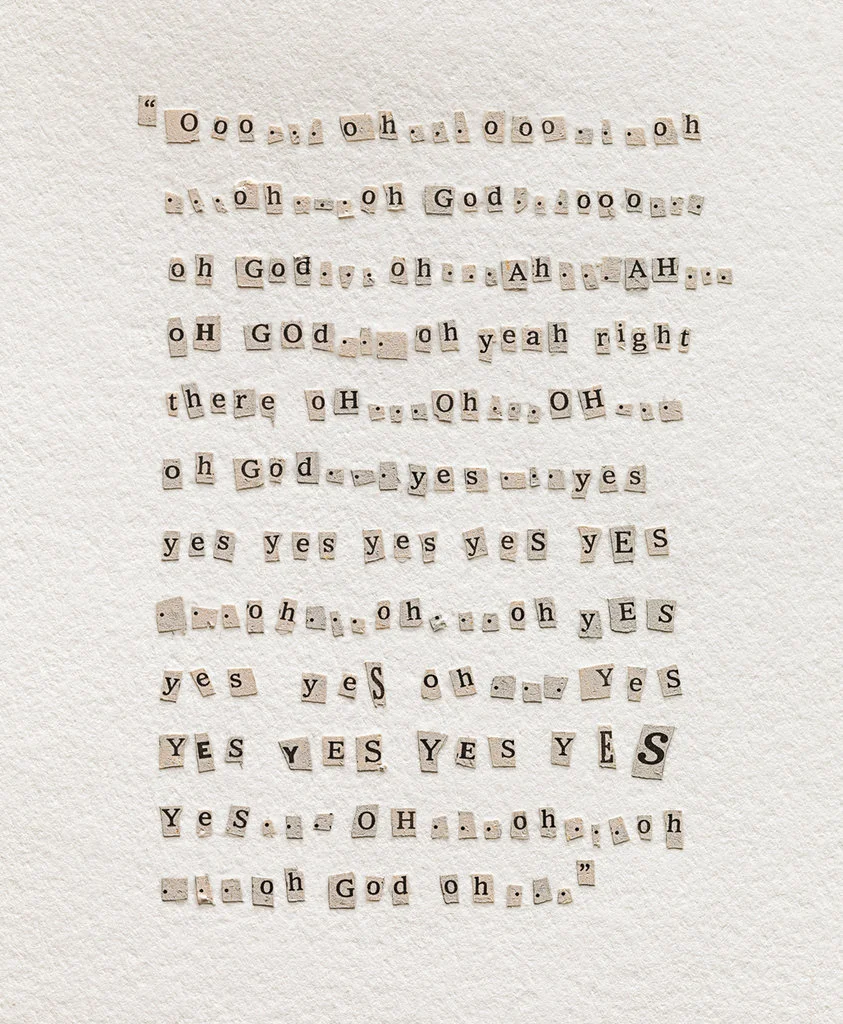 “Ooo...oh...ooo...oh
...oh...oh God...ooo...
oh God...oh...Ah...AH...
oH GOd...oh yeah right
there oH...Oh...OH...
oh God...yes...yes
yes yes yes yeS yES
...oh...oh...oh yES
yes yeS oh...YeS
YES YES YES YES
YeS...OH...oh...oh
...oh God oh...”